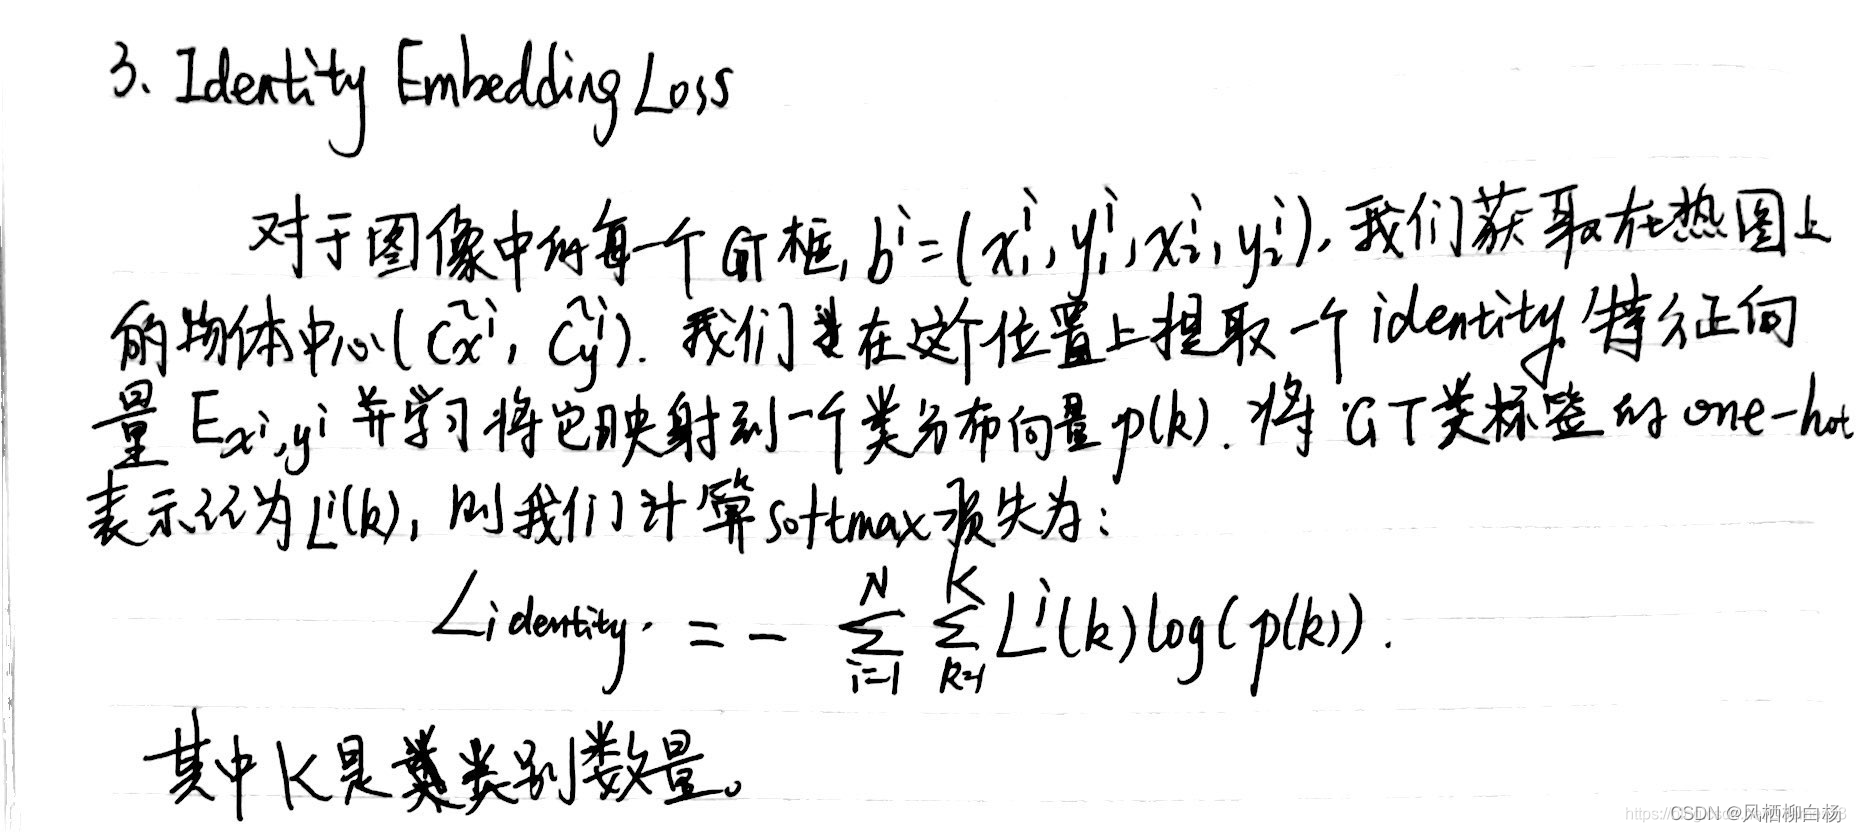 3. Identity Embedding Loss
对于图像中的每一个GT框, bⁱ=(x₁ⁱ, y₁ⁱ, x₂ⁱ, y₂ⁱ), 我们获取在热图上
的物体中心(c̃ₓⁱ, c̃ᵧⁱ). 我们在这个位置上提取一个identity特征向
量 E_{xⁱ,yⁱ} 并学习将它映射到一个类分布向量p(k). 将GT类标签的one-hot
表示记为Lⁱ(k), 则我们计算softmax损失为:
L_{identity} = - ∑_{i=1}^{N} ∑_{k=1}^{K} Lⁱ(k)log(p(k)).
其中K是类别数量。
CSDN @风栖柳白杨